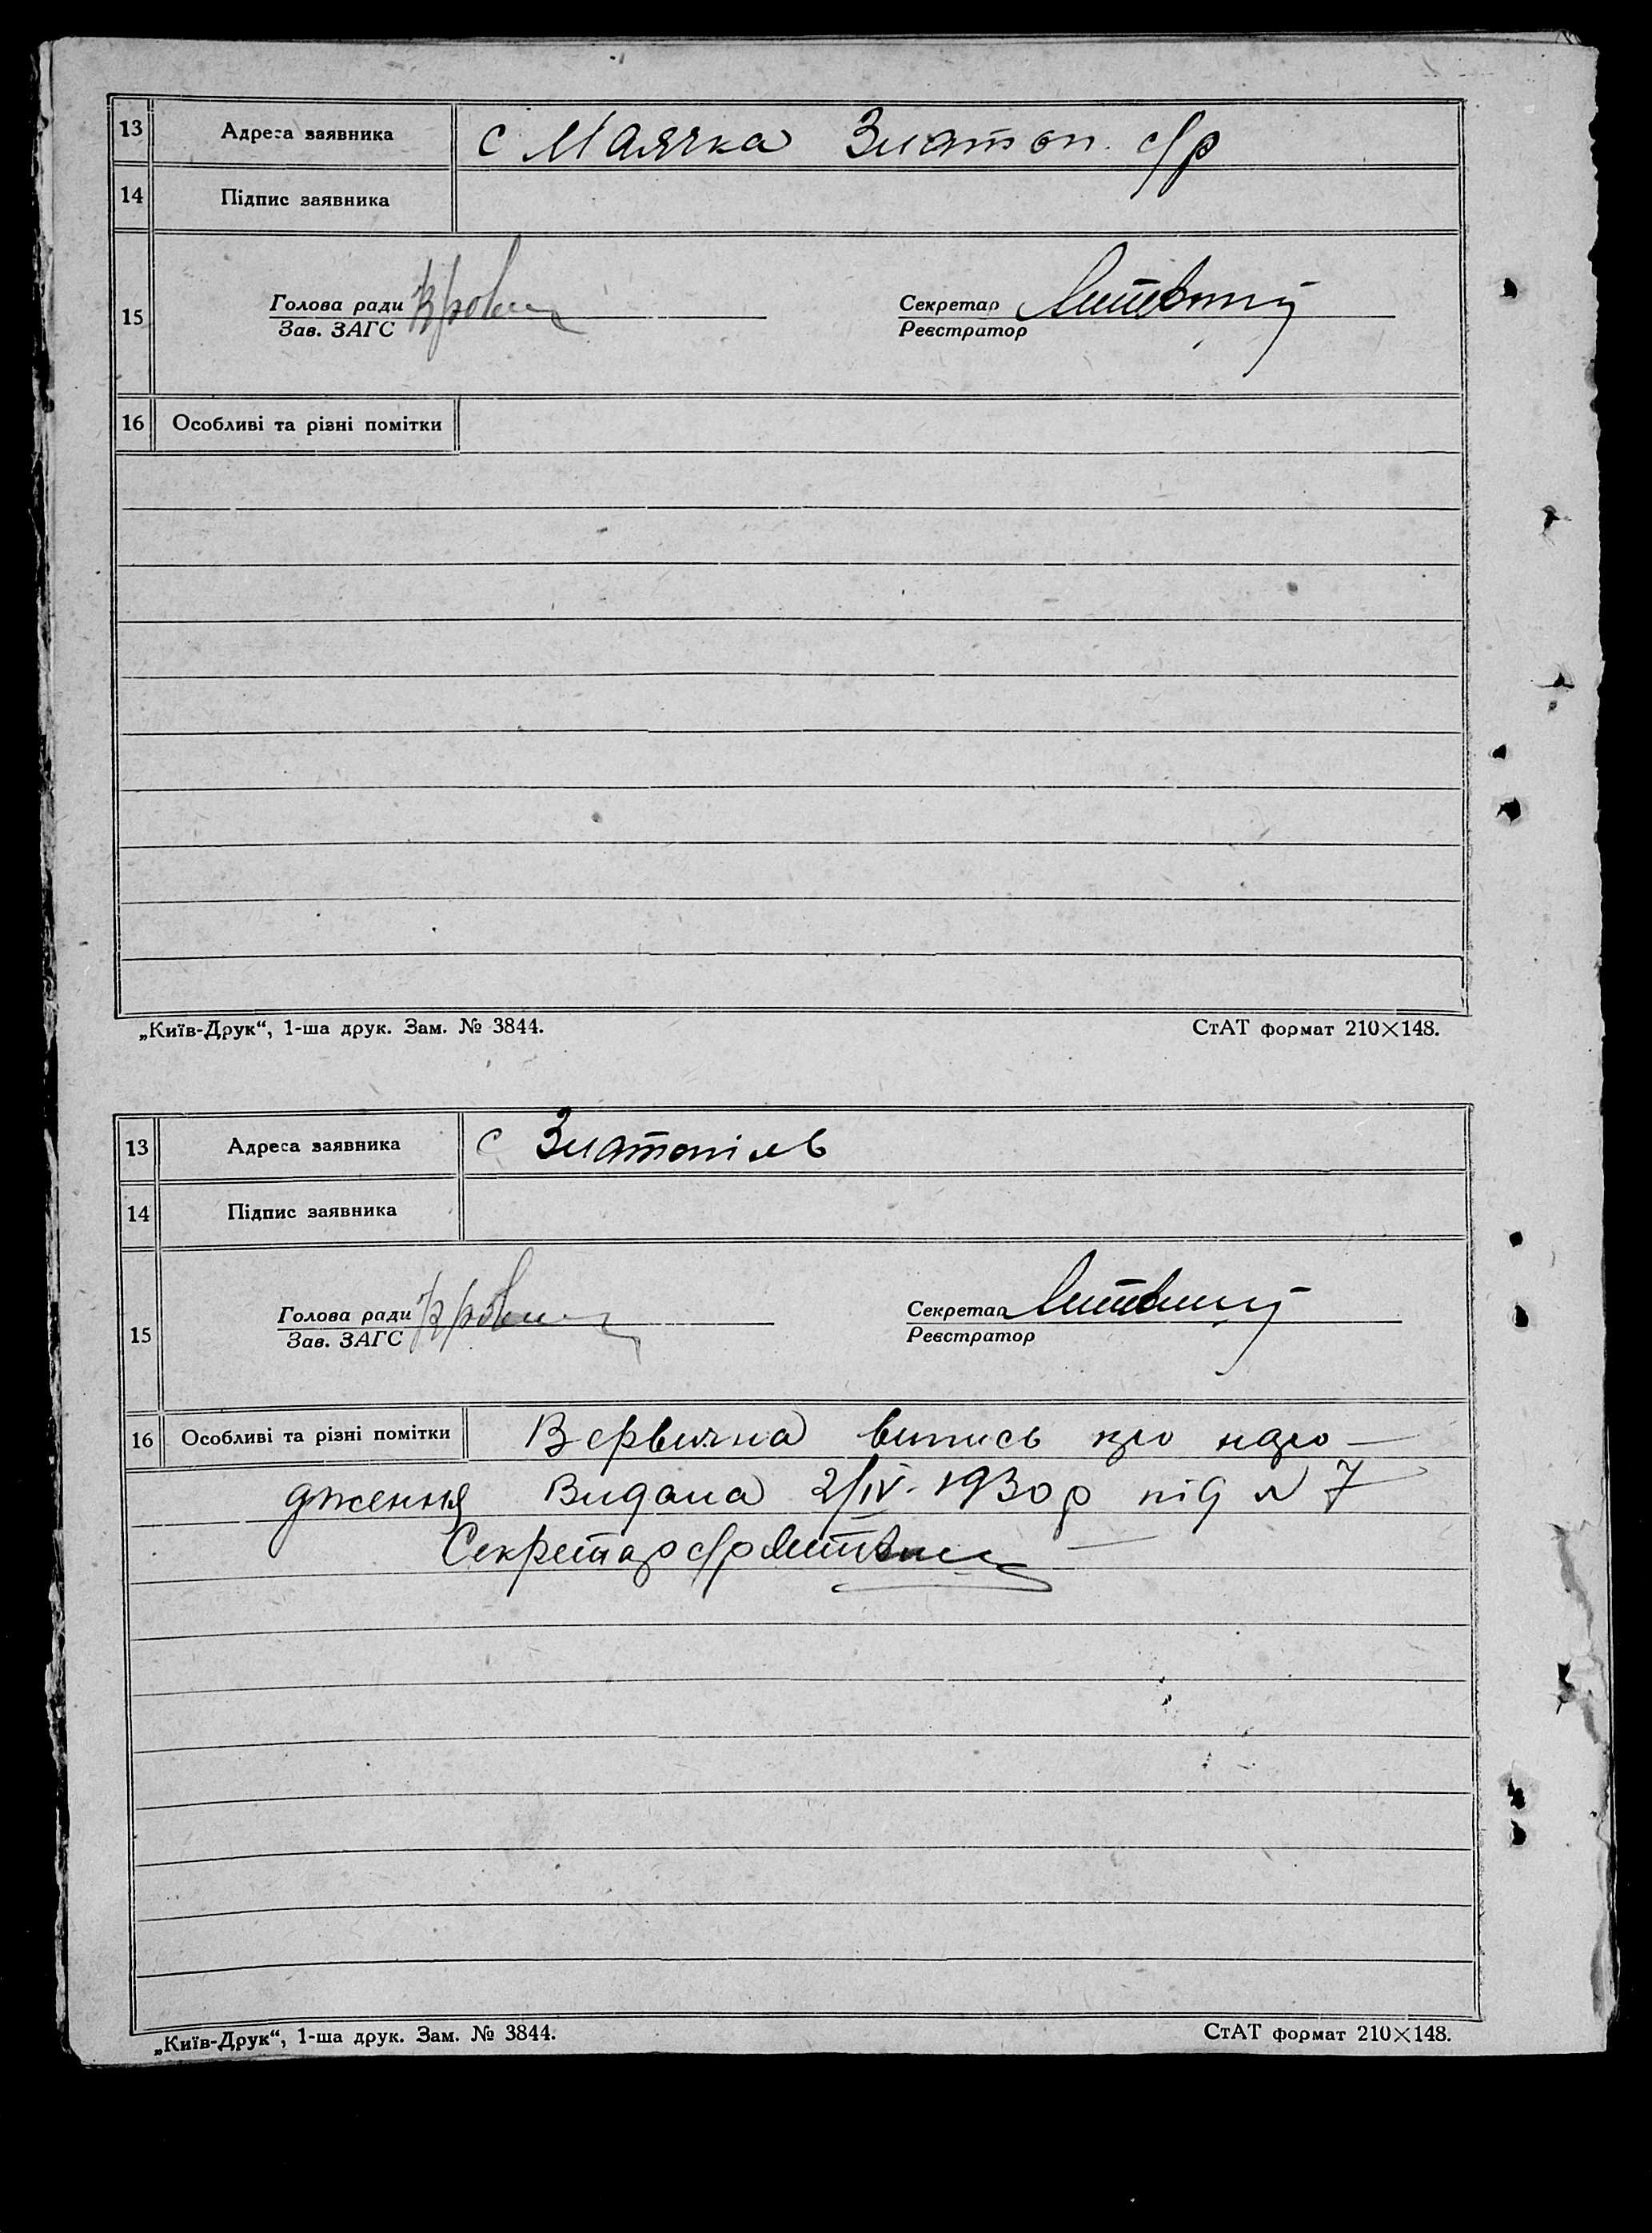 13 Адреса заявника с Маячка Златоп. с/р
14 Підпис заявника
15 Голова ради Секретар
Зав. ЗАГС Реєстратор
16 Особливі та різні помітки
„Київ-Друк“, 1-ша друк. Зам. № 3844. СтАТ формат 210×148.
13 Адреса заявника с Златопіль
14 Підпис заявника
15 Голова ради Секретар
Зав. ЗАГС Реєстратор
16 Особливі та різні помітки випись про наро-
дження Видана 2/IV-1930р під № 7
Секретар с/р
„Київ-Друк“, 1-ша друк. Зам. № 3844. СтАТ формат 210×148.